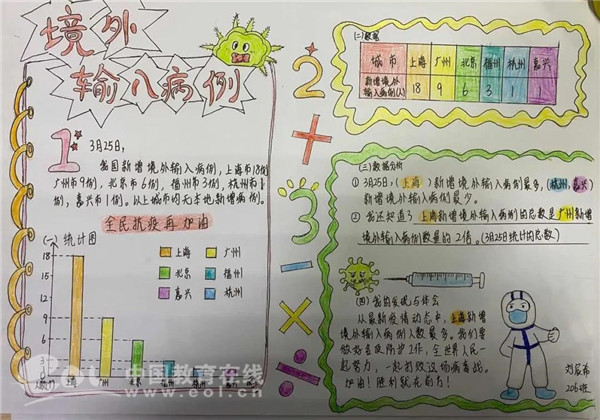 境外
输入病例
1
3月25日,
我国新增境外输入病例,上海市18例
广州市9例,北京市6例,福州市3例,杭州市1
例,嘉兴市1例。以上城市均无本地新增病例。
全民抗疫再加油
(一)统计图
上海
广州
北京
福州
嘉兴
杭州
18
9
6
3
2
(二)数据
城市 上海 广州 北京 福州 杭州 嘉兴
新增境外
输入病例(人) 18 9 6 3 1 1
3
(三)数据分析
① 3月25日,(上海)新增境外输入病例最多,(杭州,嘉兴)
新增境外输入病例最少。
② 我还知道了上海新增境外输入病例的总数是广州新增
境外输入病例数量的2倍。(3月25日统计的总数)
(四)我的发现与体会
从最新疫情动态中,上海新增
境外输入病例人数最多。我们要
做好自我防护工作,全世界人一
起努力,一起打败这场病毒战。
加油!胜利就在前方!
206班
中国教育在线
www.eol.cn